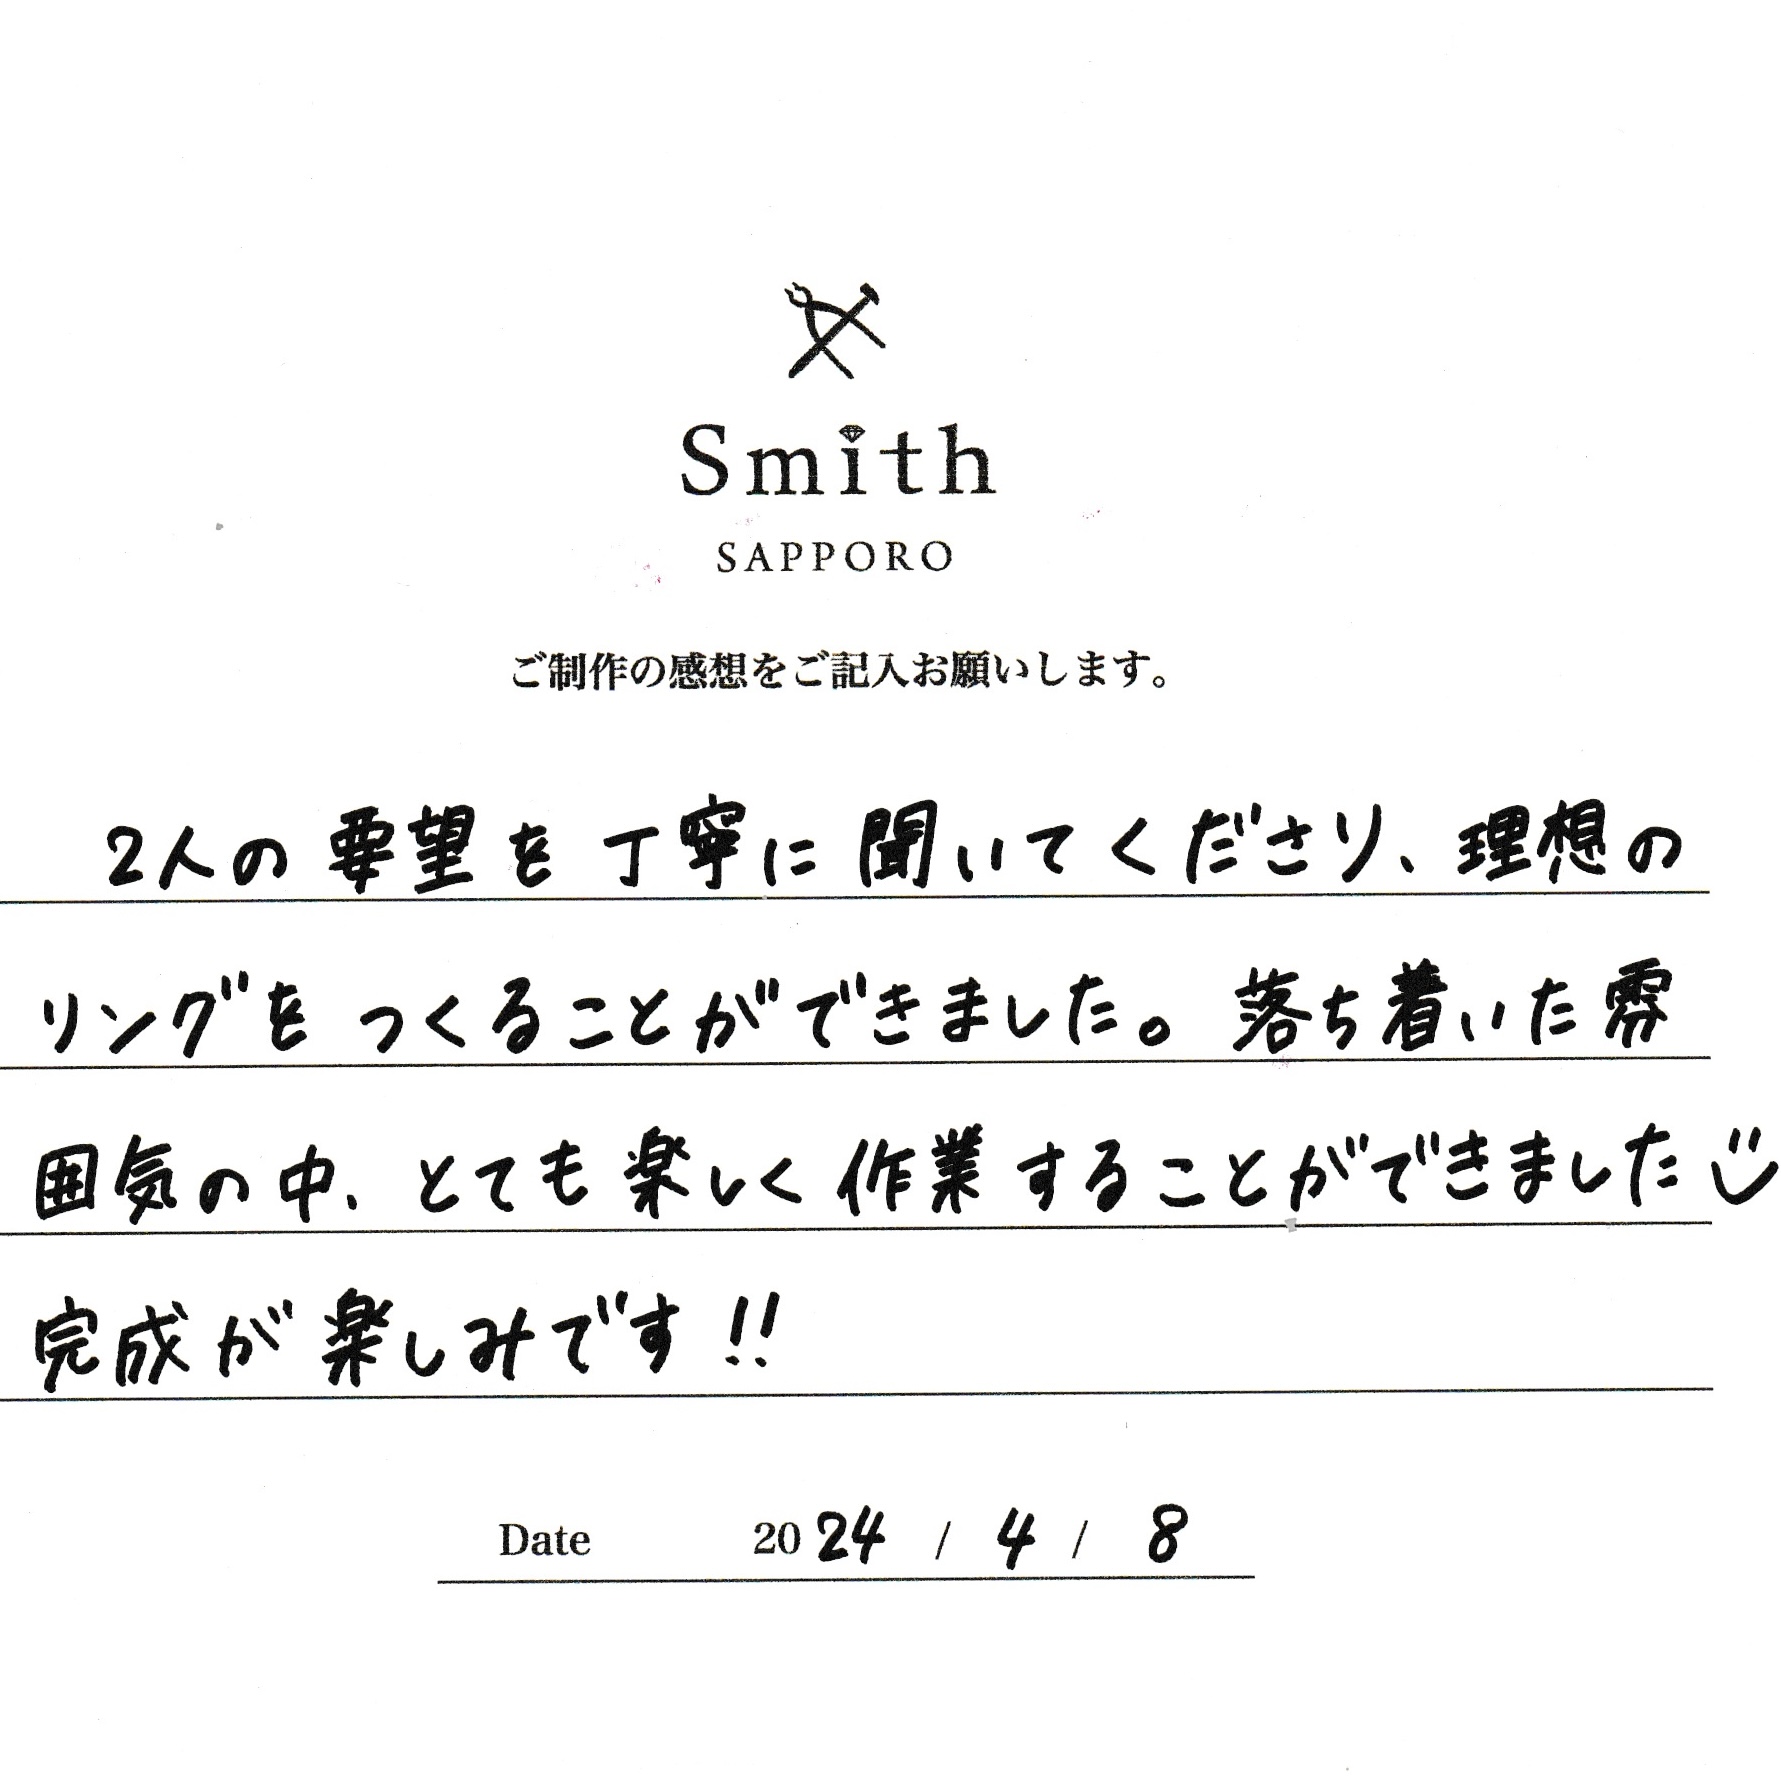 Smith
SAPPORO
ご制作の感想をご記入お願いします。
2人の要望を丁寧に聞いてくださり、理想の
リングをつくることができました。落ち着いた雰
囲気の中、とても楽しく作業することができました
完成が楽しみです!!
Date 2024 / 4 / 8